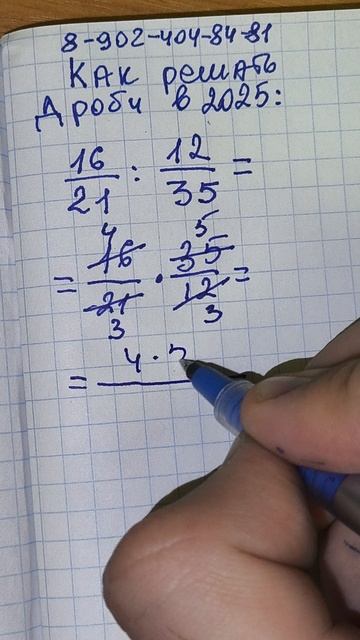 8-902-404-84-81
Как решать
Дроби в 2025:
16/21 : 12/35 =
4 5
= 16/21 · 35/12 =
3 3
= 4 ·